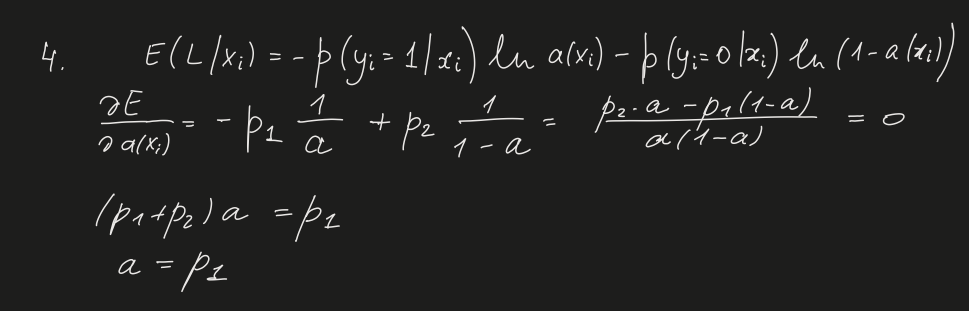 4. E(L/xᵢ) = - p(yᵢ=1/xᵢ) ln a(xᵢ) - p(yᵢ=0/xᵢ) ln (1-a(xᵢ))
∂E/∂a(xᵢ) = - p₁ 1/a + p₂ 1/(1-a) = (p₂·a - p₁(1-a))/(a(1-a)) = 0
(p₁+p₂)a = p₁
a = p₁